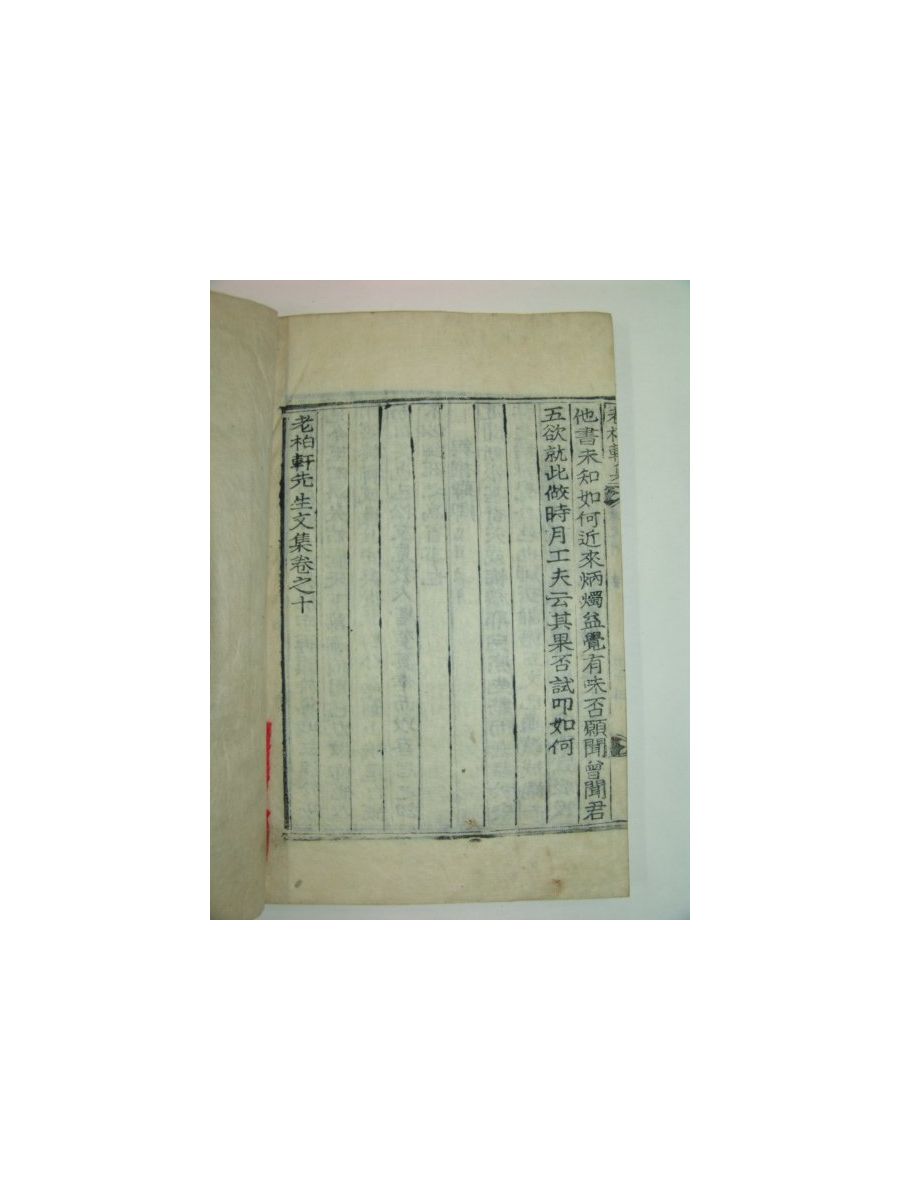 老柏軒集
他書未知如何近來炳燭益覺有味否願聞曾聞君
五欲就此做時月工夫云其果否試叩如何
老柏軒先生文集卷之十